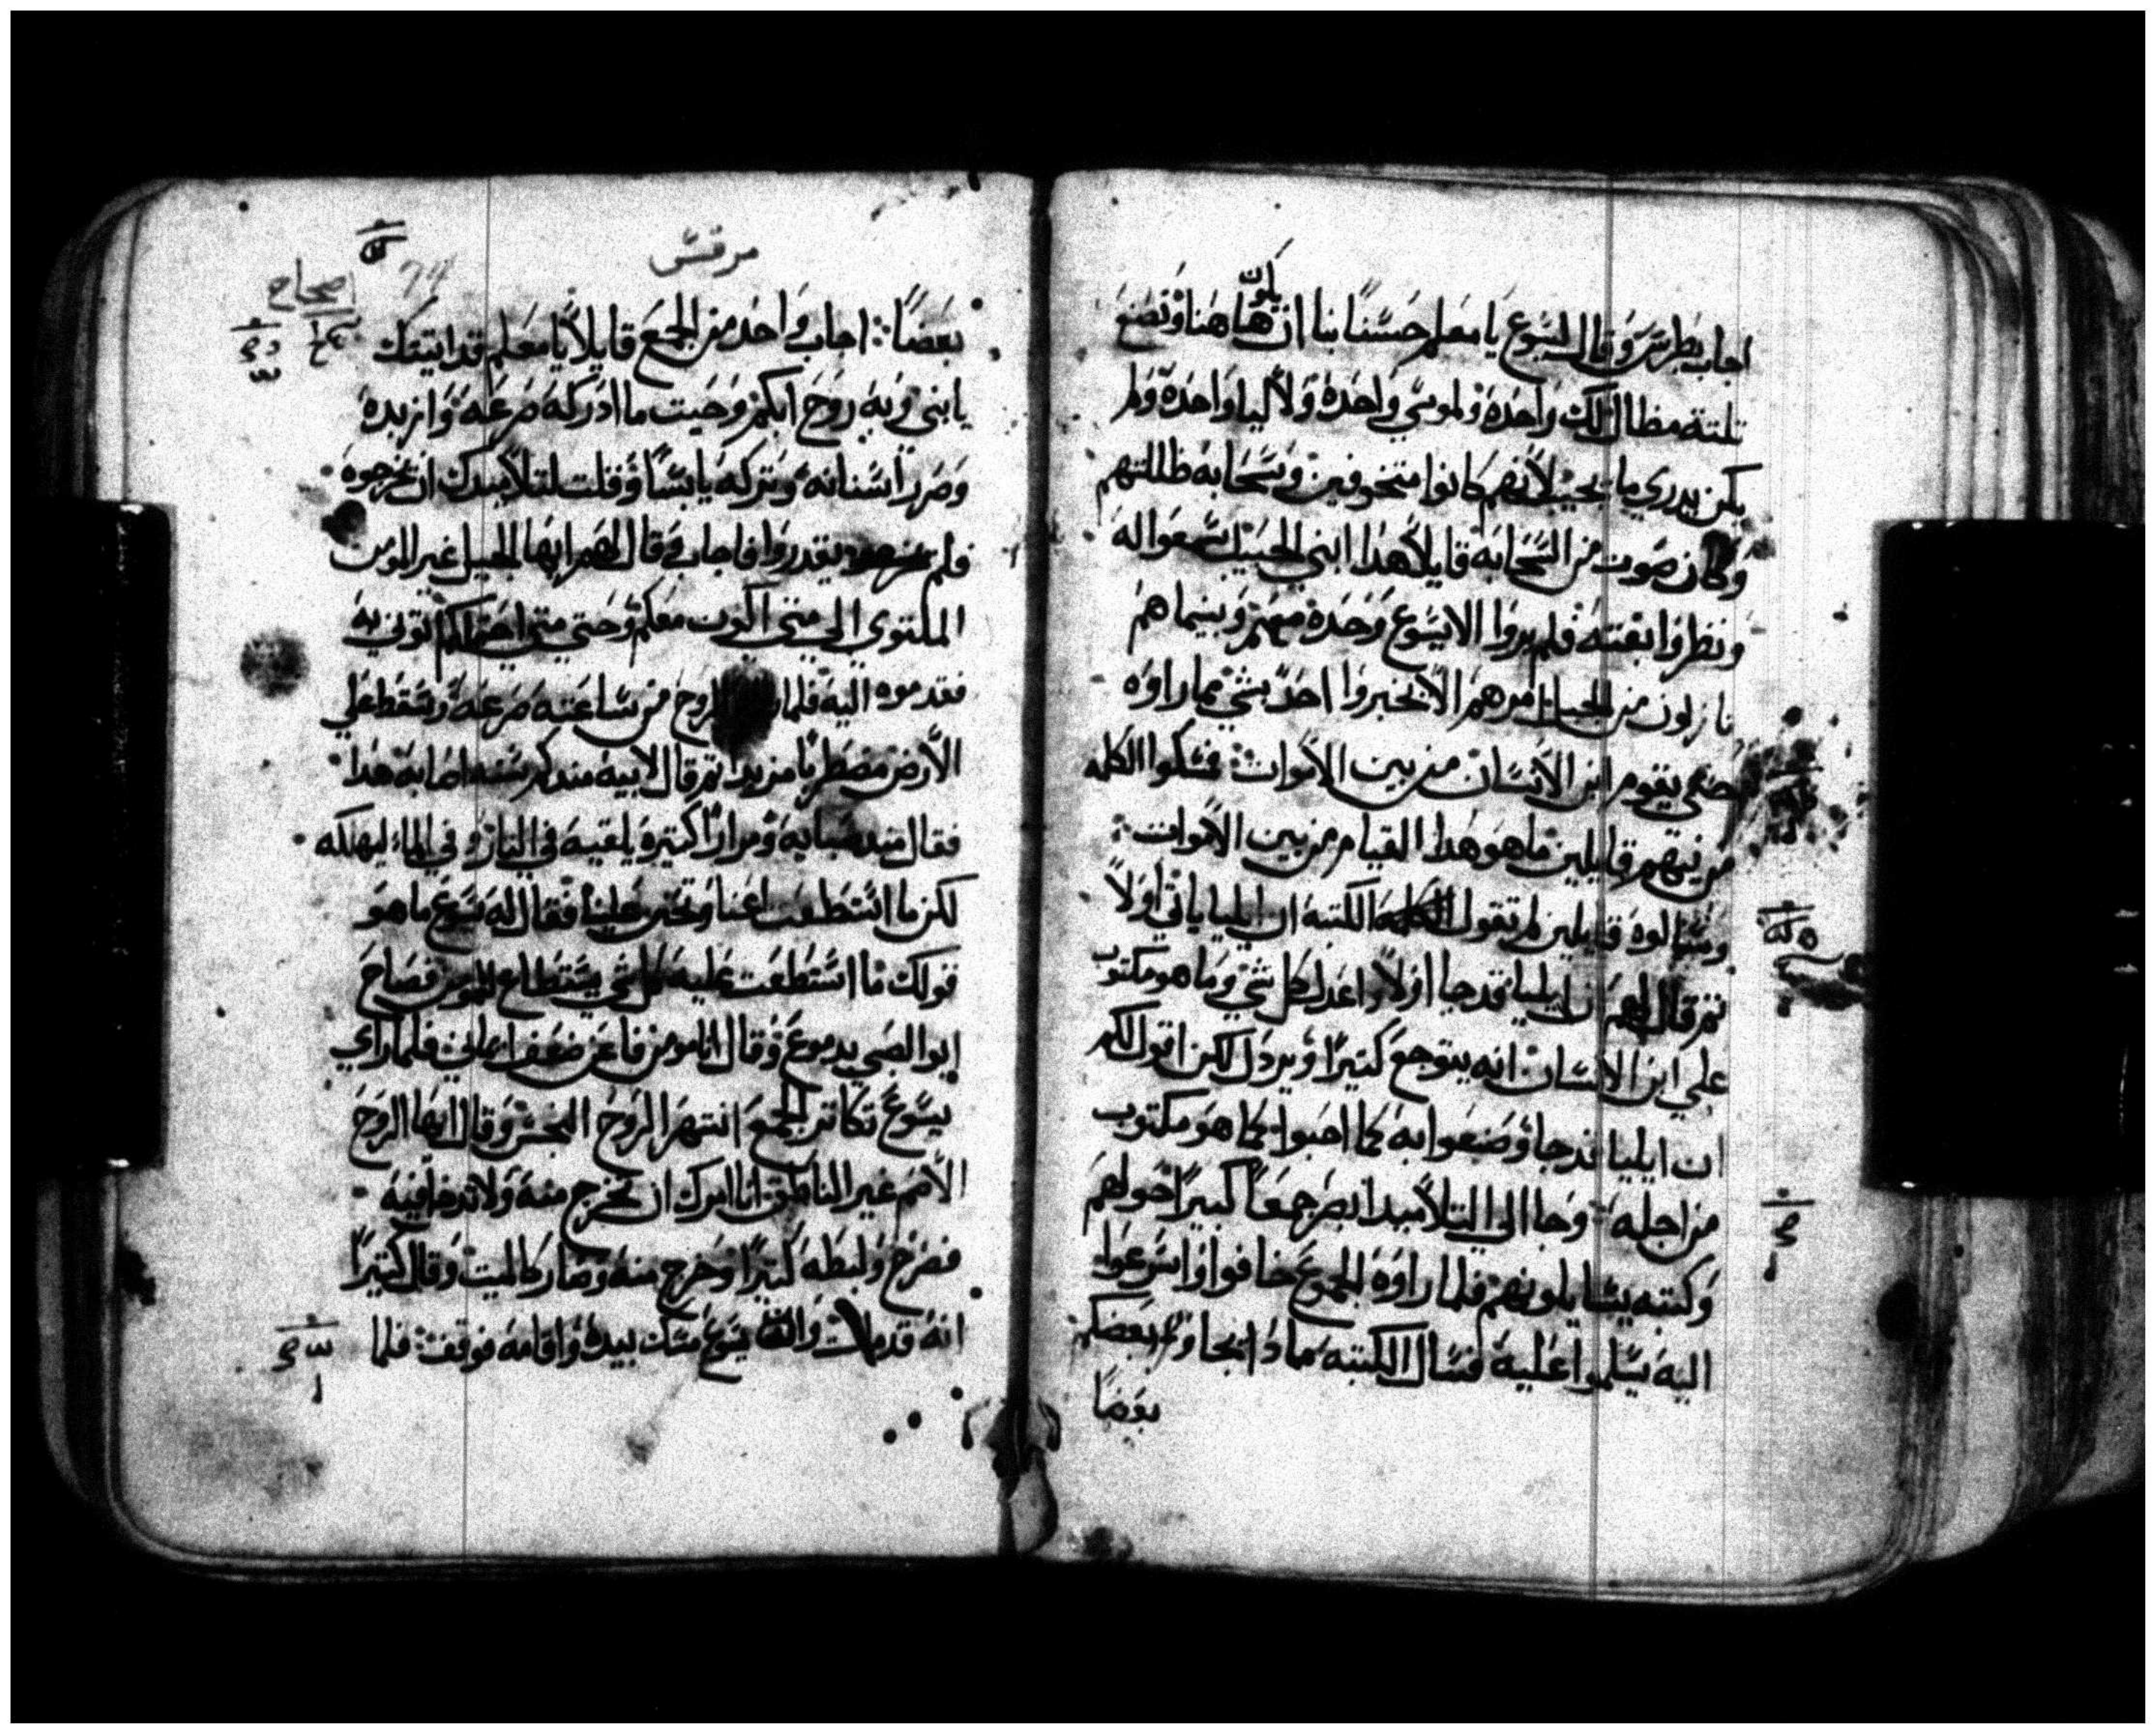 اجاب بطرس وقال ليسوع يا معلم حسنا بنا ان نكون هاهنا ونصنع
تلتة مظال لك واحدة ولموسي واحدة ولاليا واحدة ولم
يكن يدري ما يجيب لانهم كانوا متخوفين وسحابة ظللتهم
وكان صوت من السحابة قايلا هدا ابني الحبيب اسمعوا له
ونظروا بغتة فلم يروا الا يسوع وحدة معهم وبينما هم
نازلون من الجبل امرهم الا يخبروا احد بشي مما راوه
حتي يقوم ابن الانسان من بين الاموات فمسكوا الكلمه
قايلين ما هو هدا القيام من بين الاموات
وسالوه قايلين لم تقول الكتبه ان ايليا ياتي اولا
تم قال لهم ان ايليا قد جا اولا واعدل كل شي وما هو مكتوب
علي ابن الانسان انه يتوجع كتيرا ويردل لكن اقول لكم
ان ايليا قد جا وصنعوا به كما احبوا كما هو مكتوب
من اجله وجا الي التلاميد ابصر جمعا كبيرا حولهم
وكتبه يسايلونهم فلما راوه الجموع خافوا واسرعوا
اليه يسلموا عليه فسال الكتبه مادا بعضكم
بعضا
مرقس
74
اصحاح
بعضا اجاب واحد من الجمع قايلا يا معلم قد اتيتك
يا بني وبه روح ابكم وحيت ما ادركه صرعه وازبده
وصرر اسنانه وتركه يابسا وقلت لتلاميدك ان يخرجوه
فلم يقدروا فاجاب وقال لهم ايها الجيل غير المومن
الملتوي الي متي اكون معكم وحتي متي احتملكم اتوني به
فقدموه اليه فلما الروح من ساعته صرعه وسقط علي
الارض مضطربا مزبدا تم قال لابيه مند كم سنه اصابه هدا
فقال مند صباه ومرارا كتيرة يلقيه في النار وفي الماء ليهلكه
لكن ما استطعت اعنا وتحنن علينا فقال له يسوع ما هو
قولك ما استطعت عليه كل شي يستطاع للمومن فصاح
ابو الصبي بدموع وقال انا مومن فاعن ضعف ايماني فلما راي
يسوع تكاتر الجمع انتهر الروح النجس وقال ايها الروح
الاصم غير الناطق انا امرك ان تخرج منه ولا تدخل فيه
فصرخ ولبطه كتيرا وخرج منه وصار كالميت وقال كتيرا
انه قد مات وان يسوع مسك بيده واقامه فوقف فلما